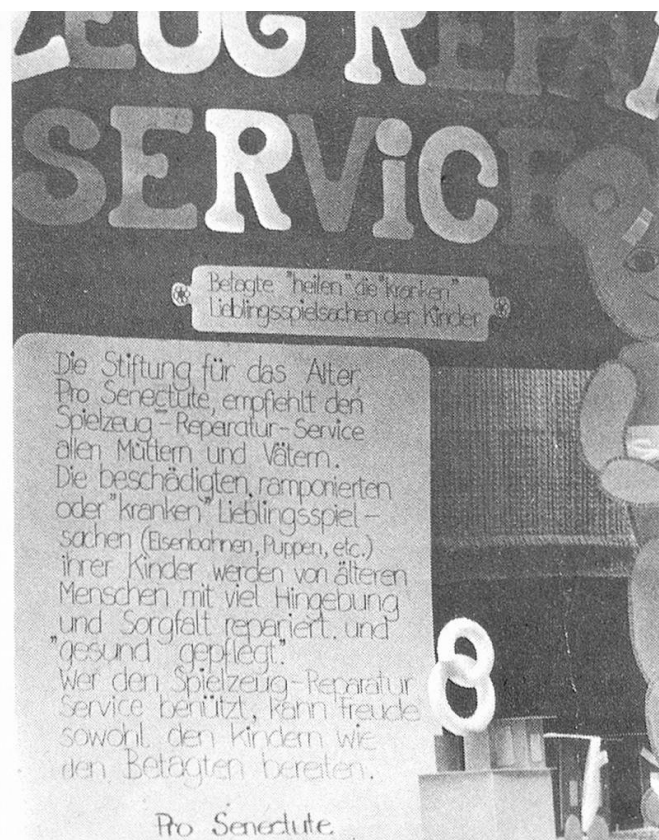 ZEUG REPA
SERVICE
Betagte "heilen" die "kranken"
Lieblingsspielsachen der Kinder
Die Stiftung für das Alter,
Pro Senectute, empfiehlt den
Spielzeug-Reparatur-Service
allen Müttern und Vätern.
Die beschädigten, ramponierten
oder "kranken" Lieblingsspiel-
sachen (Eisenbahnen, Puppen, etc.)
ihrer Kinder werden von älteren
Menschen mit viel Hingebung
und Sorgfalt repariert und
"gesund gepflegt".
Wer den Spielzeug-Reparatur
Service benützt, kann Freude
sowohl den Kindern wie
den Betagten bereiten.
Pro Senectute